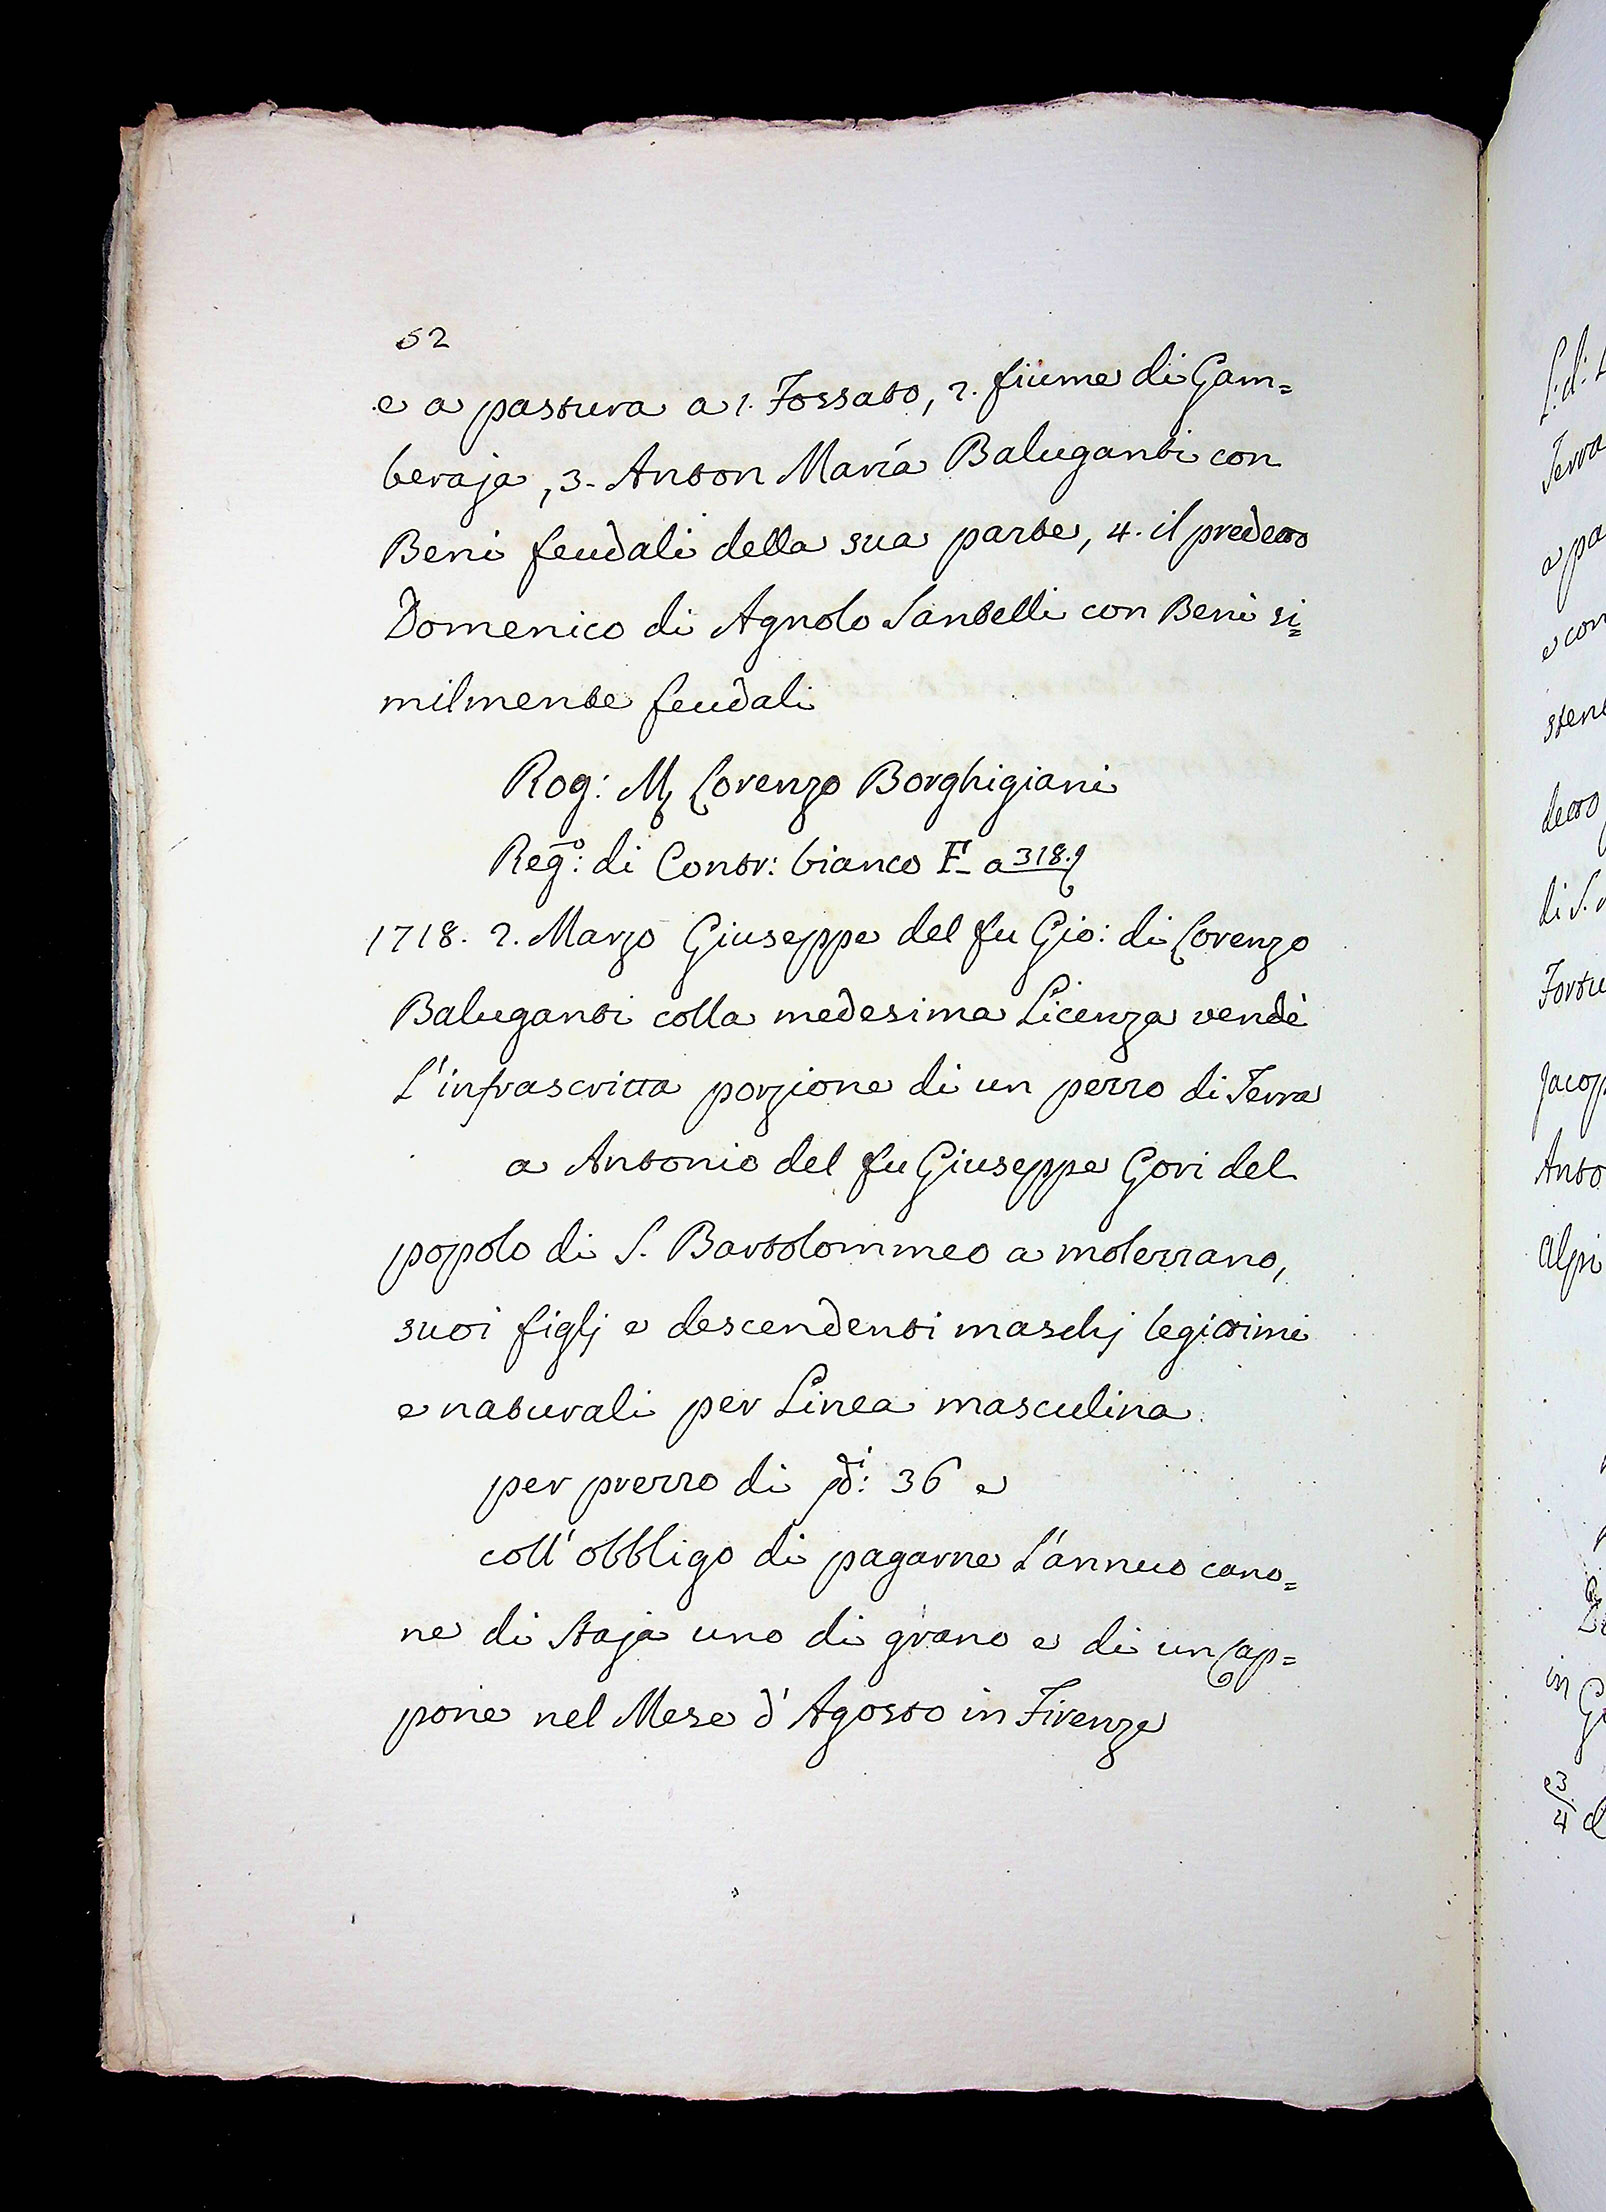 52
e a pastura a 1. Fossato, 2. fiume di Gam=
beraja, 3. Anton Maria Baluganti con
Beni feudali della sua parte, 4. il predetto
Domenico di Agnolo Santelli con Beni si=
milmente feudali
Rog: M Lorenzo Borghigiani
Reg.o: di Contr: bianco F a 318.
1718. 2. Marzo Giuseppe del fu Gio: di Lorenzo
Baluganti colla medesima Licenza vendè
L'infrascritta porzione di un pezzo di Terra
a Antonio del fu Giuseppe Gori del
popolo di S. Bartolommeo a molezzano,
suoi figlj e descendenti maschj legittimi
e naturali per Linea masculina
per prezzo di 36 e
coll'obbligo di pagarne L'annuo cano=
ne di Staja uno di grano e di un Cap=
pone nel Mese d'Agosto in Firenze
L: d:
Terra
a pa
e con
sten
detto
di S.
Fortu
Jacop
Anto
Alpi
in
3/4